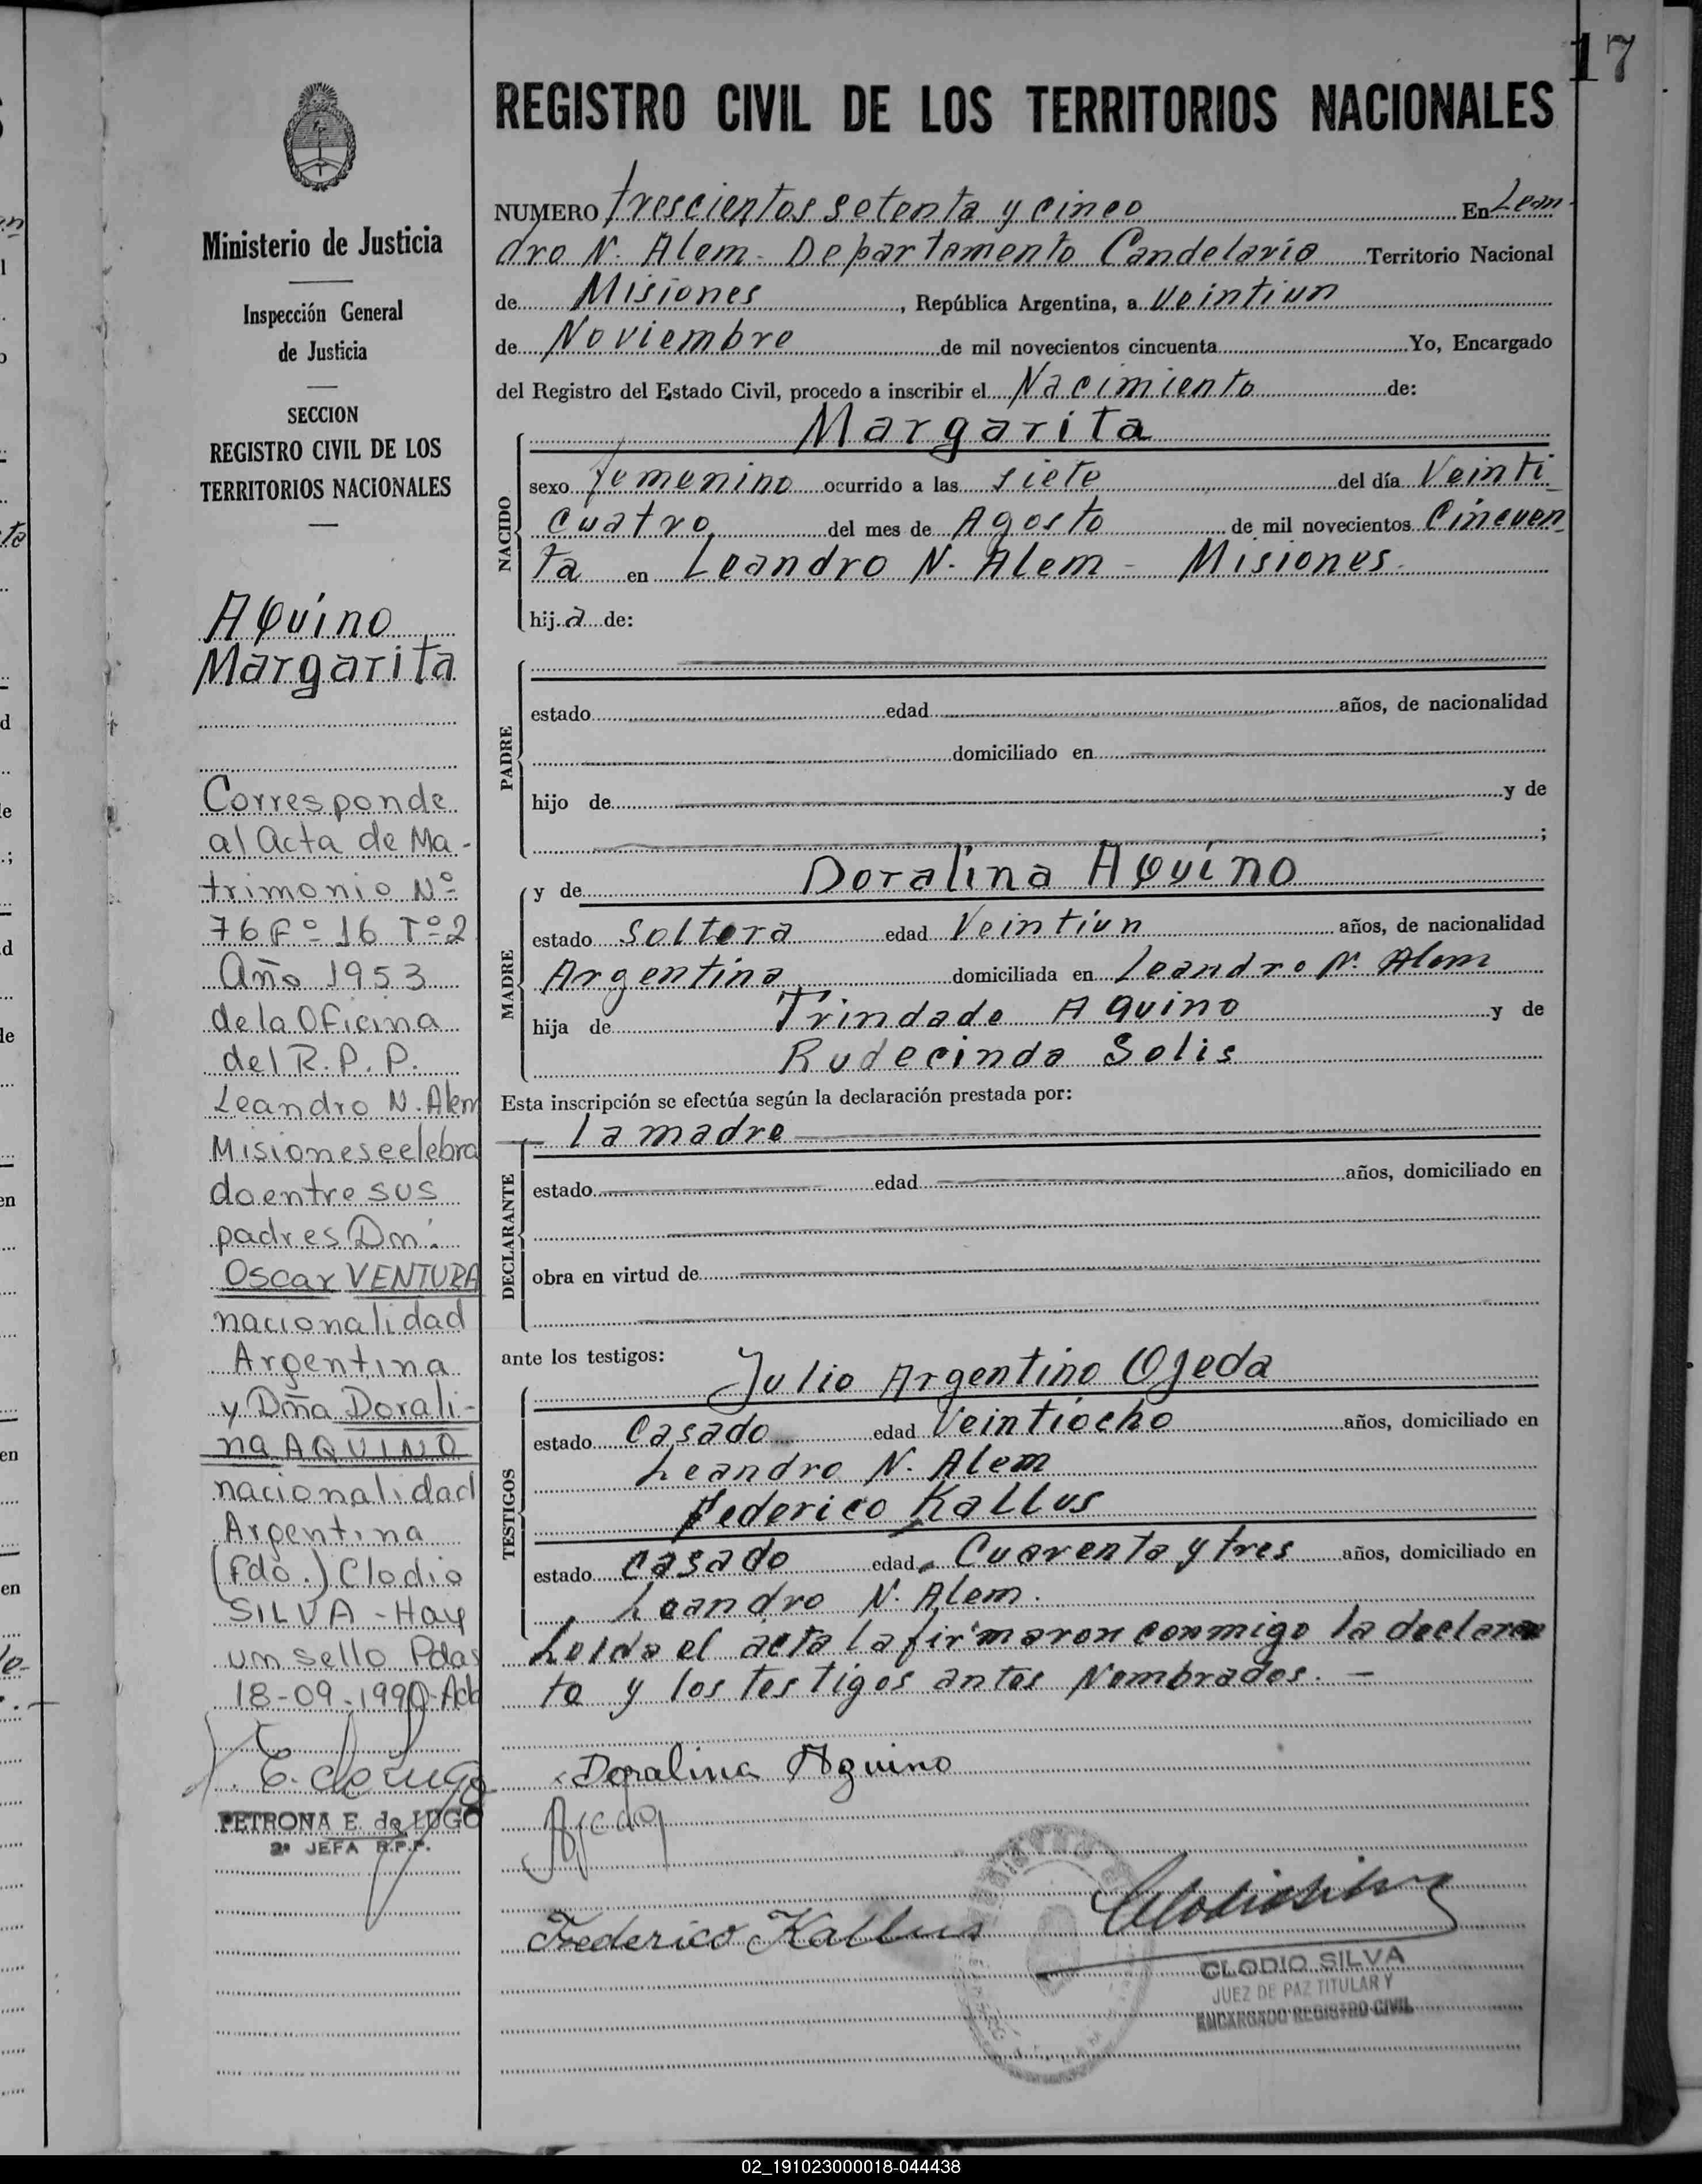 17
REGISTRO CIVIL DE LOS TERRITORIOS NACIONALES
Ministerio de Justicia
Inspección General
de Justicia
SECCION
REGISTRO CIVIL DE LOS
TERRITORIOS NACIONALES
Aquino
Margarita
Corresponde
al Acta de Ma-
trimonio Nº
76 Fº 16 Tº 2
Año 1953
de la Oficina
del R. P. P.
Leandro N. Alem
Misiones celebra
do entre sus
padres Dn:
Oscar VENTURA
nacionalidad
Argentina
y Dña Dorali-
na AQUINO
nacionalidad
Argentina
(Fdo.) Clodio
SILVA - Hay
un sello Pdas
18-09-1990
E. de Lugo
PETRONA E. de LUGO
2ª JEFA R.P.P.
NUMERO trescientos setenta y cinco En Lean-
dro N. Alem - Departamento Candelaria Territorio Nacional
de Misiones, República Argentina, a Veintiun
de Noviembre de mil novecientos cincuenta Yo, Encargado
del Registro del Estado Civil, procedo a inscribir el Nacimiento de:
Margarita
NACIDO
sexo femenino ocurrido a las siete del día Veinti
cuatro del mes de Agosto de mil novecientos Cincuen
ta en Leandro N. Alem - Misiones.
hija de:
PADRE
estado edad años, de nacionalidad
domiciliado en
hijo de y de
;
y de Doralina Aquino
MADRE
estado Soltera edad Veintiun años, de nacionalidad
Argentina domiciliada en Leandro N. Alem
hija de Trindade Aquino y de
Rudecinda Solis
Esta inscripción se efectúa según la declaración prestada por:
la madre
DECLARANTE
estado edad años, domiciliado en
obra en virtud de
ante los testigos:
Julio Argentino Ojeda
TESTIGOS
estado Casado edad Veintiocho años, domiciliado en
Leandro N. Alem
Federico Kallus
estado casado edad Cuarenta y tres años, domiciliado en
Leandro N. Alem.
Leida el acta la firmaron conmigo la declaran
te y los testigos antes Nombrados. -
Doralina Aquino
Federico Kallus
CLODIO SILVA
JUEZ DE PAZ TITULAR Y
ENCARGADO REGISTRO CIVIL
02_191023000018-044438